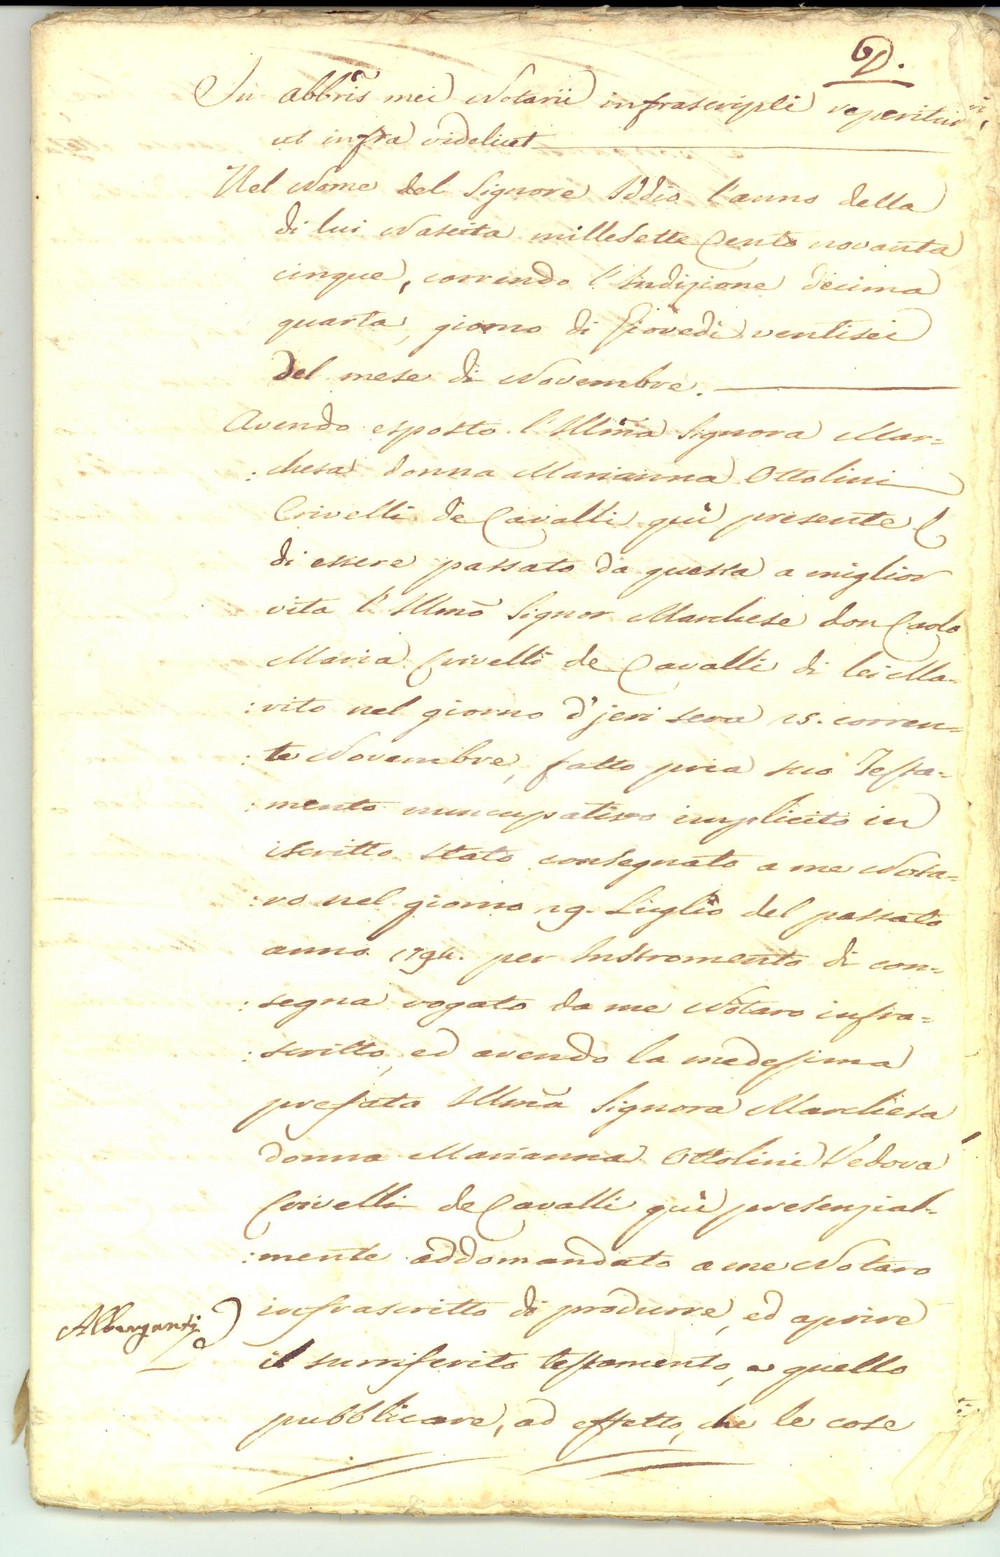 In abbrīs mei Notarii infrascripti reperitur
ut infra videlicet
Nel Nome del Signore Iddio l'anno della
di lui Nascita millesette Cento novanta
cinque, correndo l'Indizione decima
quarta, giorno di Giovedì ventisei
del mese di Novembre.
Avendo esposto l'Illma Signora Mar=
:chesa donna Marianna Ottolini
Crivelli de Cavalli quì presente
di essere passato da questa a miglior
vita l'Illmo Signor Marchese don Carlo
Maria Crivelli de Cavalli di lei Ma=
:rito nel giorno d'jeri sera 25. corren=
:te Novembre, fatto pria suo Testa=
:mento nuncupativo implicito in
iscritto stato consegnato a me Nota=
:ro nel giorno 19. Luglio del passato
anno 1794. per Instromento di con=
:segna rogato da me Notaro infra=
:scritto, ed avendo la medesima
prefata Illma Signora Marchesa
donna Marianna Ottolini Vedova
Crivelli de Cavalli quì presenzial=
:mente addomandato a me Notaro
Alberganti
infrascritto di produrre, ed aprire
il surriferito testamento, e quello
pubblicare, ad effetto, che le cose